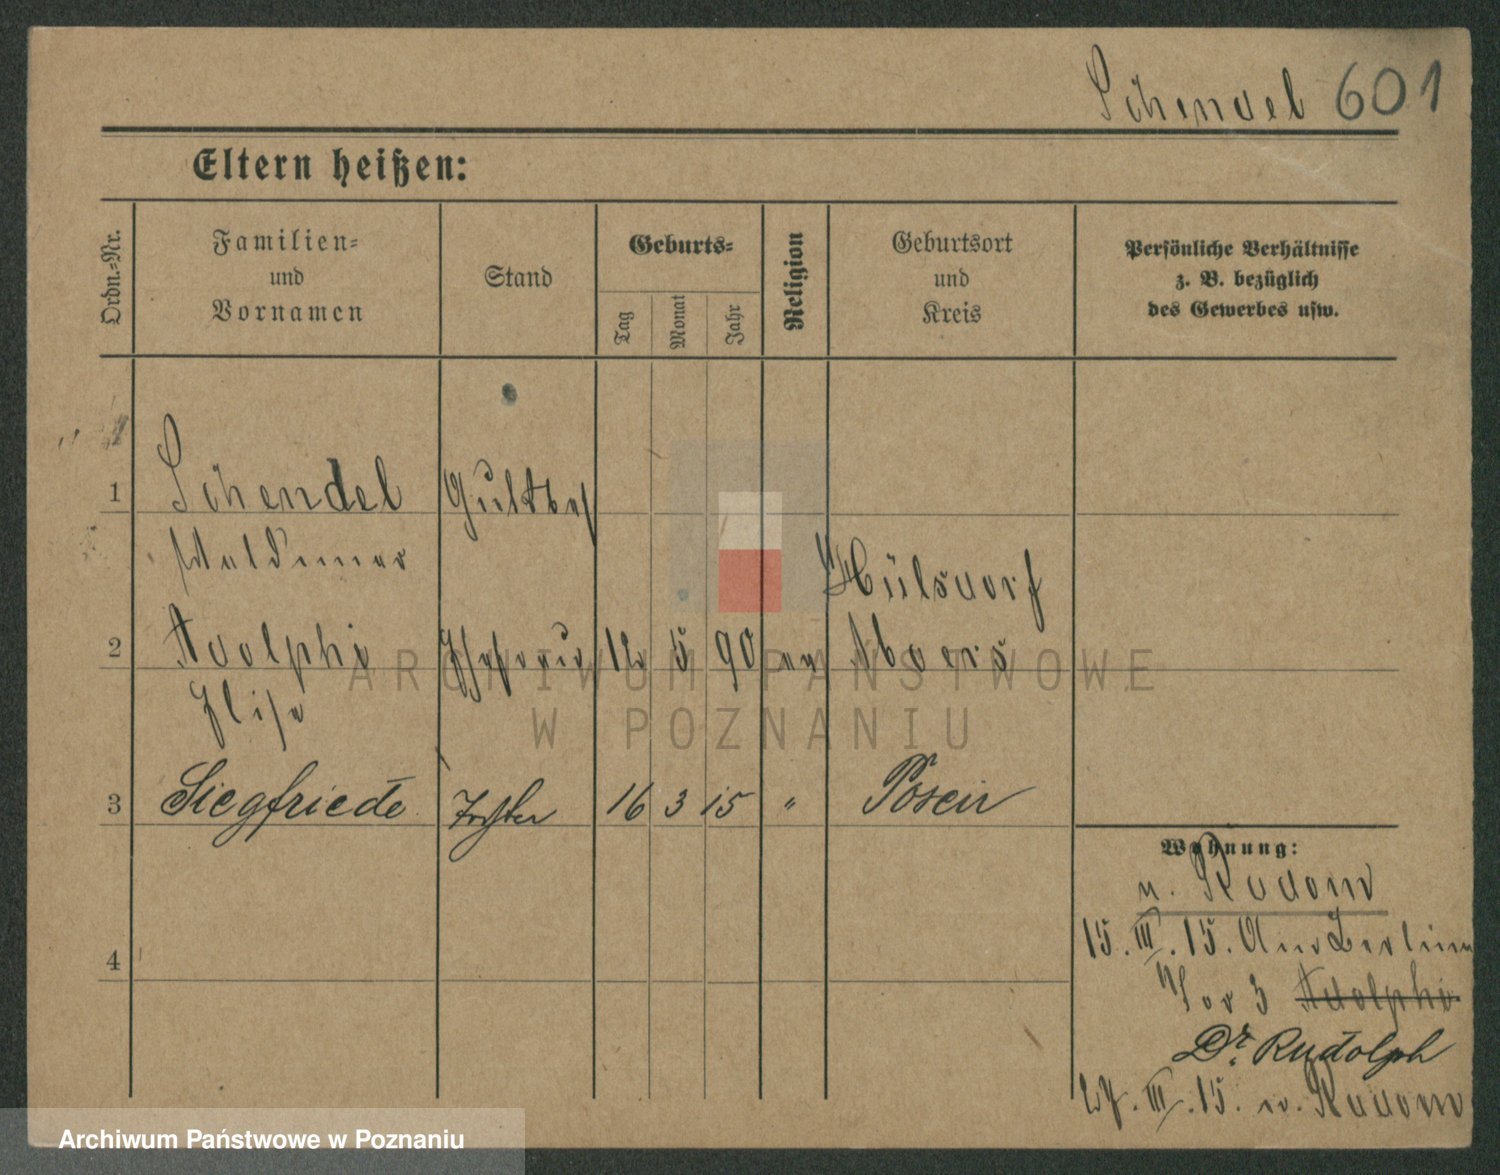 Schendel 601
Eltern heißen:
Ordn.-Nr.
Familien-
und
Vornamen
Stand
Geburts-
Tag
Monat
Jahr
Religion
Geburtsort
und
Kreis
Persönliche Verhältnisse
z. B. bezüglich
des Gewerbes usw.
1 Schendel
Waldemar
Hülsdorf
2 Adolphi 12 5 90 Moers
Elise
3 Siegfriede Tochter 16 3 15 " Posen
4
Wohnung:
n. Radom
15. III. 15. Am Berliner
Tor 3 Adolphi
Dr. Rudolph
27. III. 15. n. Radom
ARCHIWUM PAŃSTWOWE
W POZNANIU
Archiwum Państwowe w Poznaniu